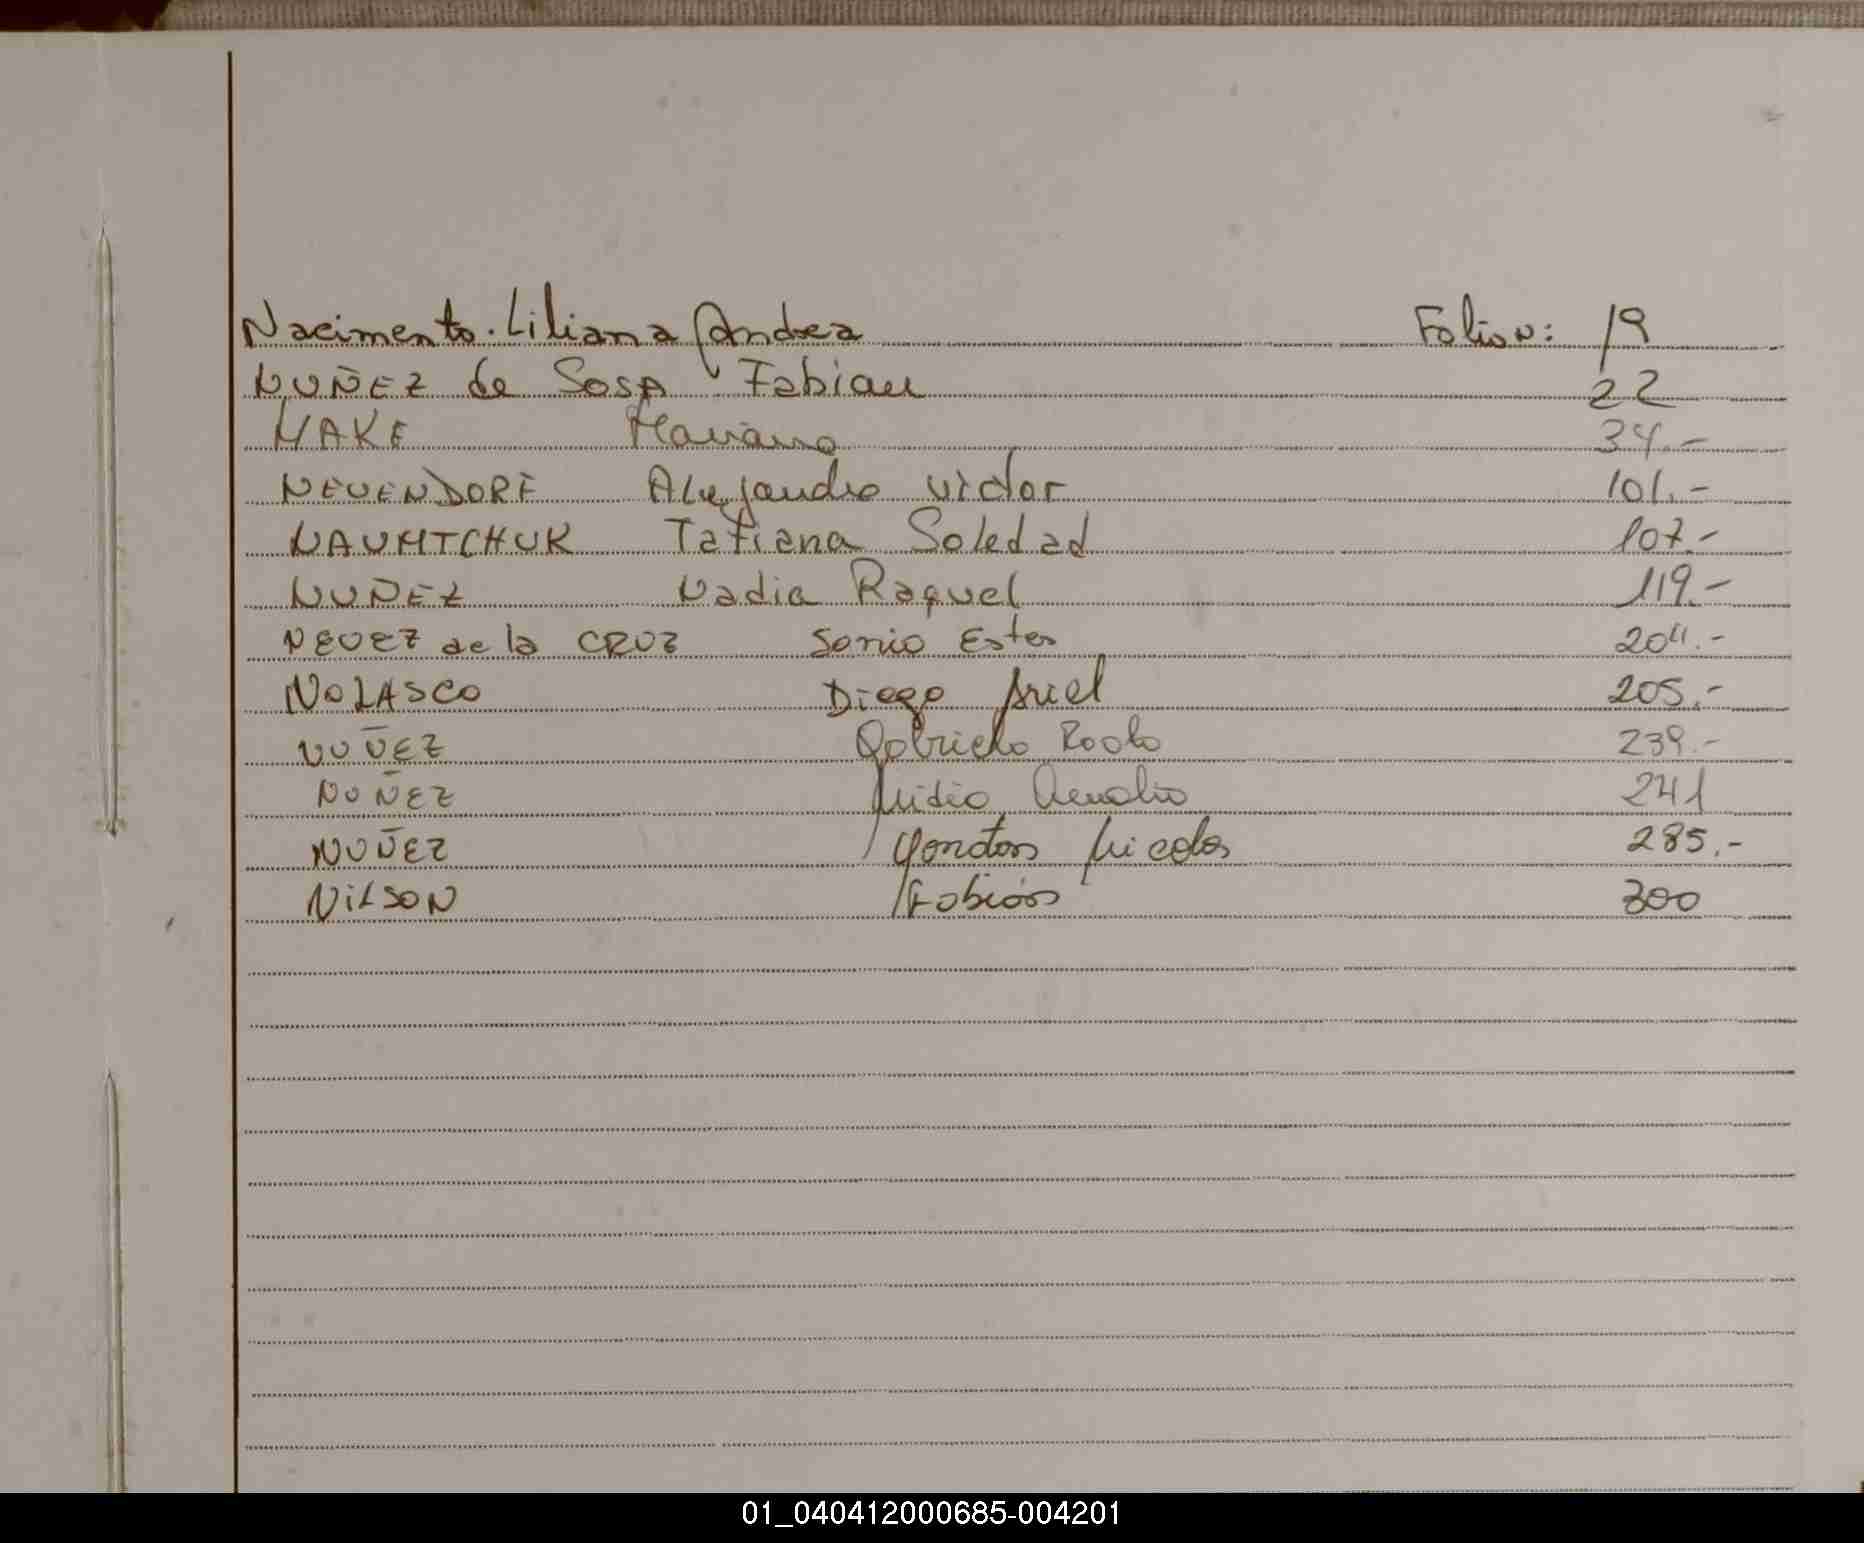 Nacimento. Liliana Andrea Folio N: 19
NUÑEZ de SOSA Fabian 22
NAKE Mariano 34.-
NEUENDORF Alejandro Victor 101.-
NAUMTCHUK Tatiana Soledad 107.-
NUÑEZ Nadia Raquel 119.-
NEUEZ de la CRUZ Sonia Ester 204.-
NOLASCO Diego Ariel 205.-
NUÑEZ Gabriela Paola 239.-
NUÑEZ 241
NUÑEZ Nicolas 285.-
NILSON Fabian 300
01_040412000685-004201